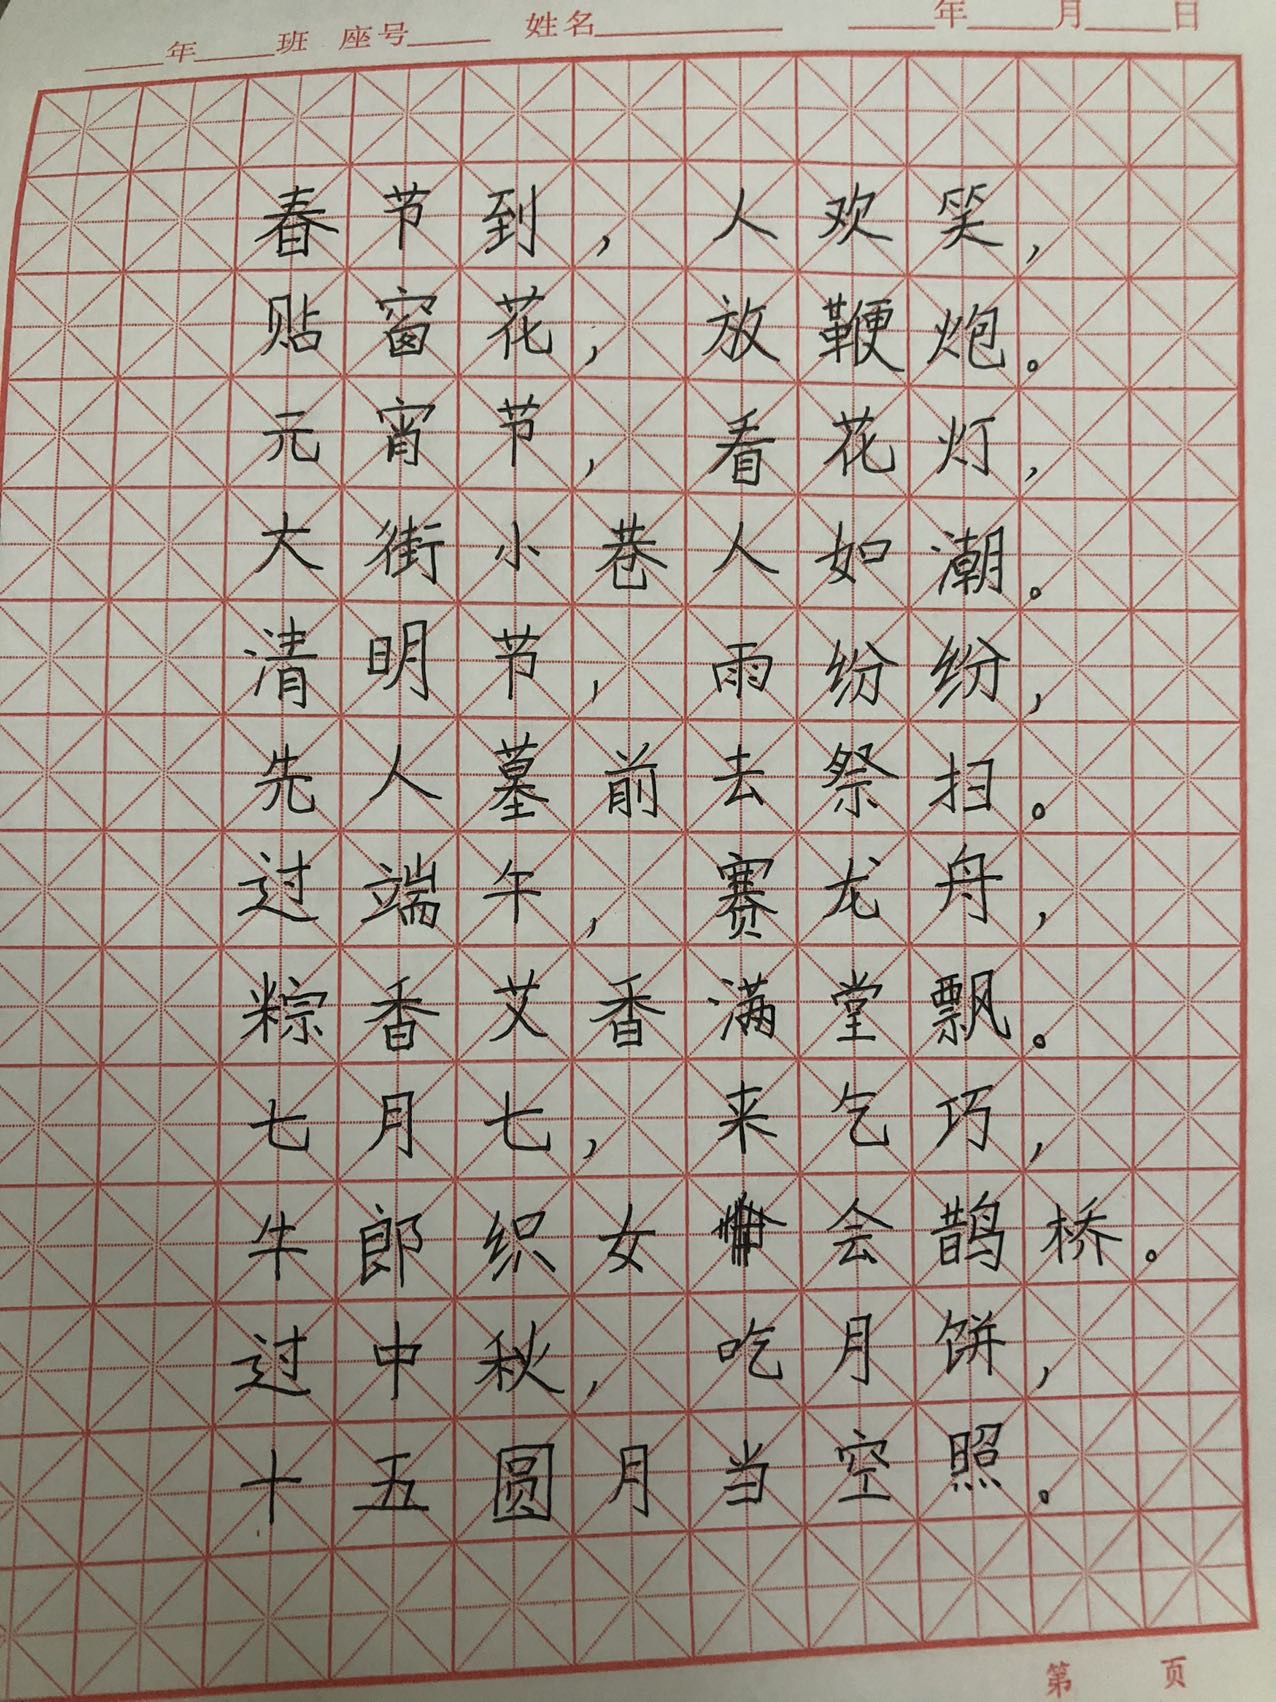 ____年____班 座号____ 姓名________ ____年____月____日
春节到，人欢笑，
贴窗花，放鞭炮。
元宵节，看花灯，
大街小巷人如潮。
清明节，雨纷纷，
先人墓前去祭扫。
过端午，赛龙舟，
粽香艾香满堂飘。
七月七，来乞巧，
牛郎织女会鹊桥。
过中秋，吃月饼，
十五圆月当空照。
第 页